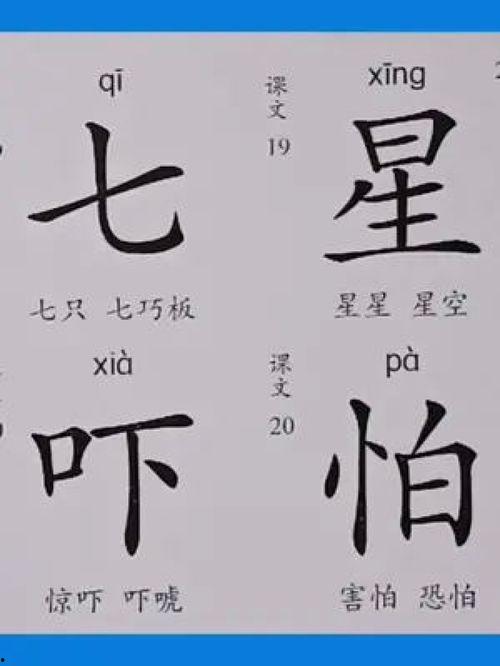 qī
七
七只 七巧板
课文
19
xīng
星
星星 星空
xià
吓
惊吓 吓唬
课文
20
pà
怕
害怕 恐怕